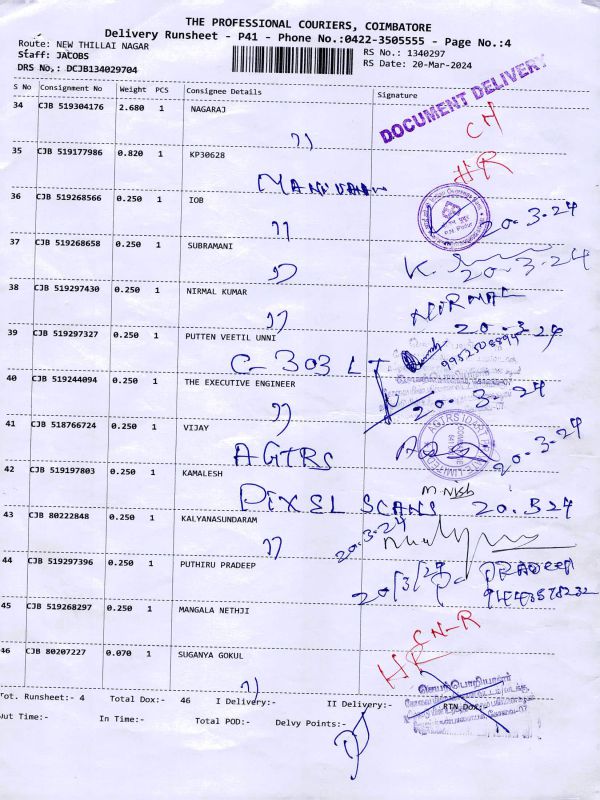 THE PROFESSIONAL COURIERS, COIMBATORE
Delivery Runsheet - P41 - Phone No.:0422-3505555 - Page No.:4
Route: NEW THILLAI NAGAR
Staff: JACOBS
RS No.: 1340297
DRS No,: DCJB134029704
RS Date: 20-Mar-2024
S No Consignment No Weight PCS Consignee Details Signature
DOCUMENT DELIVERY
34 CJB 519304176 2.680 1 NAGARAJ
CH
35 CJB 519177986 0.820 1 KP30628
HR
36 CJB 519268566 0.250 1 IOB
20.3.24
37 CJB 519268658 0.250 1 SUBRAMANI
20-3-24
38 CJB 519297430 0.250 1 NIRMAL KUMAR
NIRMAL
20.3.24
39 CJB 519297327 0.250 1 PUTTEN VEETIL UNNI
C-303 LT
40 CJB 519244094 0.250 1 THE EXECUTIVE ENGINEER
20-3-24
41 CJB 518766724 0.250 1 VIJAY
AGTRS
20-3-24
42 CJB 519197803 0.250 1 KAMALESH
PIXEL SCANS
20.324
43 CJB 80222848 0.250 1 KALYANASUNDARAM
20.3.24
44 CJB 519297396 0.250 1 PUTHIRU PRADEEP
20/3/24
PRADEEP
45 CJB 519268297 0.250 1 MANGALA NETHJI
CN-R
46 CJB 80207227 0.070 1 SUGANYA GOKUL
HR
Tot. Runsheet:- 4 Total Dox:- 46 I Delivery:- II Delivery:- RTN Dox:-
Out Time:- In Time:- Total POD:- Delvy Points:-